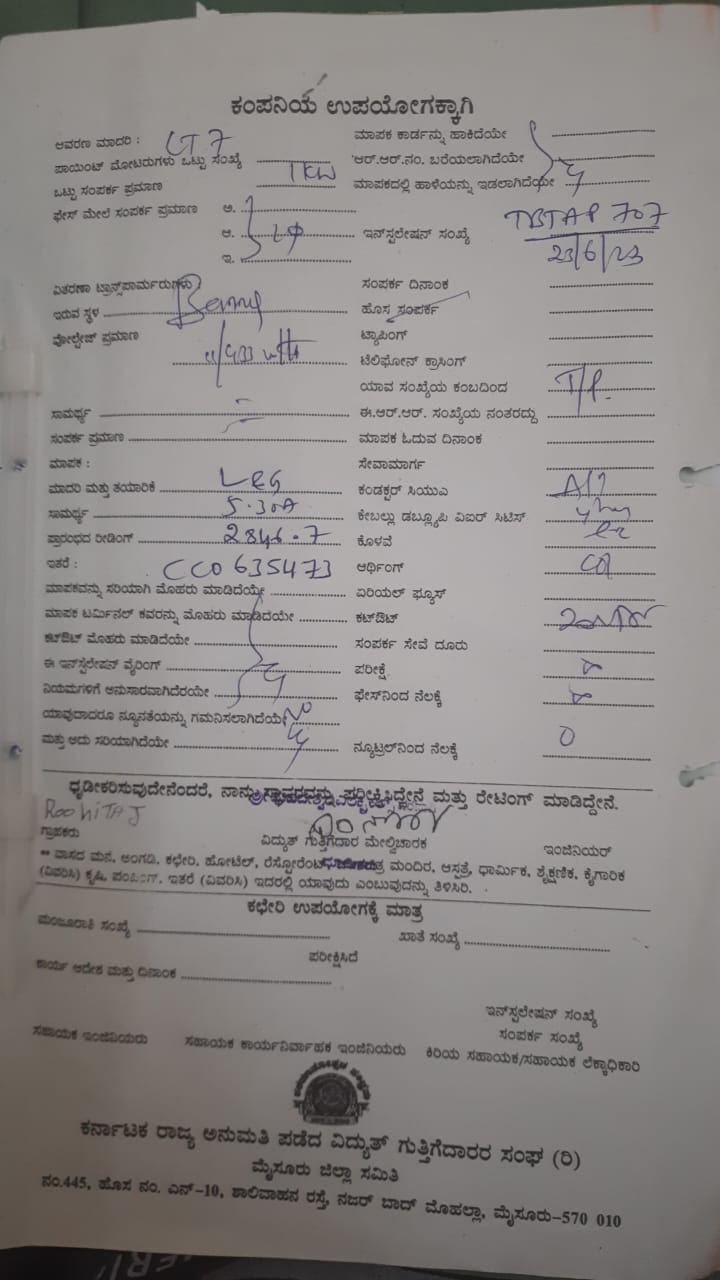 ಕಂಪನಿಯ ಉಪಯೋಗಕ್ಕಾಗಿ
ಆವರಣ ಮಾದರಿ : LT 7 ಮಾಪಕ ಕಾರ್ಡನ್ನು ಹಾಕಿದೆಯೇ
ಪಾಯಿಂಟ್ ಮೋಟರುಗಳು ಒಟ್ಟು ಸಂಖ್ಯೆ ಆರ್.ಆರ್.ನಂ. ಬರೆಯಲಾಗಿದೆಯೇ
ಒಟ್ಟು ಸಂಪರ್ಕ ಪ್ರಮಾಣ 1KW ಮಾಪಕದಲ್ಲಿ ಹಾಳೆಯನ್ನು ಇಡಲಾಗಿದೆಯೇ
ಫೇಸ್ ಮೇಲೆ ಸಂಪರ್ಕ ಪ್ರಮಾಣ ಅ.
ಆ. ಇನ್‌ಸ್ಟಲೇಷನ್ ಸಂಖ್ಯೆ TBTAP 707
ಇ. 23/6/23
ವಿತರಣಾ ಟ್ರಾನ್ಸ್‌ಪಾರ್ಮರುಗಳು ಸಂಪರ್ಕ ದಿನಾಂಕ
ಇರುವ ಸ್ಥಳ ಹೊಸ ಸಂಪರ್ಕ
ವೋಲ್ಟೇಜ್ ಪ್ರಮಾಣ ಟ್ಯಾಪಿಂಗ್
11/433 ಟೆಲಿಫೋನ್ ಕ್ರಾಸಿಂಗ್
ಯಾವ ಸಂಖ್ಯೆಯ ಕಂಬದಿಂದ T/P.
ಸಾಮರ್ಥ್ಯ ಈ.ಆರ್.ಆರ್. ಸಂಖ್ಯೆಯ ನಂತರದ್ದು
ಸಂಪರ್ಕ ಪ್ರಮಾಣ ಮಾಪಕ ಓದುವ ದಿನಾಂಕ
ಮಾಪಕ : ಸೇವಾಮಾರ್ಗ
ಮಾದರಿ ಮತ್ತು ತಯಾರಿಕೆ L&G ಕಂಡಕ್ಟರ್ ಸಿಯುಎ
ಸಾಮರ್ಥ್ಯ 5.30A ಕೇಬಲ್ಲು ಡಬ್ಲ್ಯೂಪಿ ಎಐರ್ ಸಿಟಿಸ್
ಪ್ರಾರಂಭದ ರೀಡಿಂಗ್ 2846.7 ಕೊಳವೆ
ಇತರೆ : CCO 635473 ಆರ್ಥಿಂಗ್
ಮಾಪಕವನ್ನು ಸರಿಯಾಗಿ ಮೊಹರು ಮಾಡಿದೆಯೇ ಏರಿಯಲ್ ಫ್ಯೂಸ್
ಮಾಪಕ ಟರ್ಮಿನಲ್ ಕವರನ್ನು ಮೊಹರು ಮಾಡಿದೆಯೇ ಕಟ್‌ಔಟ್
ಕಟ್‌ಔಟ್ ಮೊಹರು ಮಾಡಿದೆಯೇ ಸಂಪರ್ಕ ಸೇವೆ ದೂರು
ಈ ಇನ್‌ಸ್ಟಲೇಷನ್ ವೈರಿಂಗ್ ಪರೀಕ್ಷೆ
ನಿಯಮಗಳಿಗೆ ಅನುಸಾರವಾಗಿದೆರಯೇ ಫೇಸ್‌ನಿಂದ ನೆಲಕ್ಕೆ
ಯಾವುದಾದರೂ ನ್ಯೂನತೆಯನ್ನು ಗಮನಿಸಲಾಗಿದೆಯೇ No
ಮತ್ತು ಅದು ಸರಿಯಾಗಿದೆಯೇ ನ್ಯೂಟ್ರಲ್‌ನಿಂದ ನೆಲಕ್ಕೆ 0
ಧೃಡೀಕರಿಸುವುದೇನೆಂದರೆ, ನಾನು ಸ್ಥಾವರವನ್ನು ಪರೀಕ್ಷಿಸಿದ್ದೇನೆ ಮತ್ತು ರೇಟಿಂಗ್ ಮಾಡಿದ್ದೇನೆ.
RoohiTAJ
ಗ್ರಾಹಕರು ವಿದ್ಯುತ್ ಗುತ್ತಿಗೆದಾರ ಮೇಲ್ವಿಚಾರಕ ಇಂಜಿನಿಯರ್
** ವಾಸದ ಮನೆ, ಅಂಗಡಿ, ಕಛೇರಿ, ಹೋಟೆಲ್, ರೆಸ್ಟೋರೆಂಟ್ ಮಂದಿರ, ಆಸ್ಪತ್ರೆ, ಧಾರ್ಮಿಕ, ಶೈಕ್ಷಣಿಕ, ಕೈಗಾರಿಕ
(ವಿವರಿಸಿ) ಕೃಷಿ, ಪಂಪಿಂಗ್, ಇತರೆ (ವಿವರಿಸಿ) ಇದರಲ್ಲಿ ಯಾವುದು ಎಂಬುವುದನ್ನು ತಿಳಿಸಿರಿ.
ಕಛೇರಿ ಉಪಯೋಗಕ್ಕೆ ಮಾತ್ರ
ಮಂಜೂರಾತಿ ಸಂಖ್ಯೆ ಖಾತೆ ಸಂಖ್ಯೆ
ಪರೀಕ್ಷಿಸಿದೆ
ಕಾರ್ಯ ಆದೇಶ ಮತ್ತು ದಿನಾಂಕ
ಇನ್‌ಸ್ಟಲೇಷನ್ ಸಂಖ್ಯೆ
ಸಂಪರ್ಕ ಸಂಖ್ಯೆ
ಸಹಾಯಕ ಇಂಜಿನಿಯರು ಸಹಾಯಕ ಕಾರ್ಯನಿರ್ವಾಹಕ ಇಂಜಿನಿಯರು ಕಿರಿಯ ಸಹಾಯಕ/ಸಹಾಯಕ ಲೆಕ್ಕಾಧಿಕಾರಿ
ಕರ್ನಾಟಕ ರಾಜ್ಯ ಅನುಮತಿ ಪಡೆದ ವಿದ್ಯುತ್ ಗುತ್ತಿಗೆದಾರರ ಸಂಘ (ರಿ)
ಮೈಸೂರು ಜಿಲ್ಲಾ ಸಮಿತಿ
ನಂ.445, ಹೊಸ ನಂ. ಎನ್-10, ಶಾಲಿವಾಹನ ರಸ್ತೆ, ನಜರ್ ಬಾದ್ ಮೊಹಲ್ಲಾ, ಮೈಸೂರು-570 010